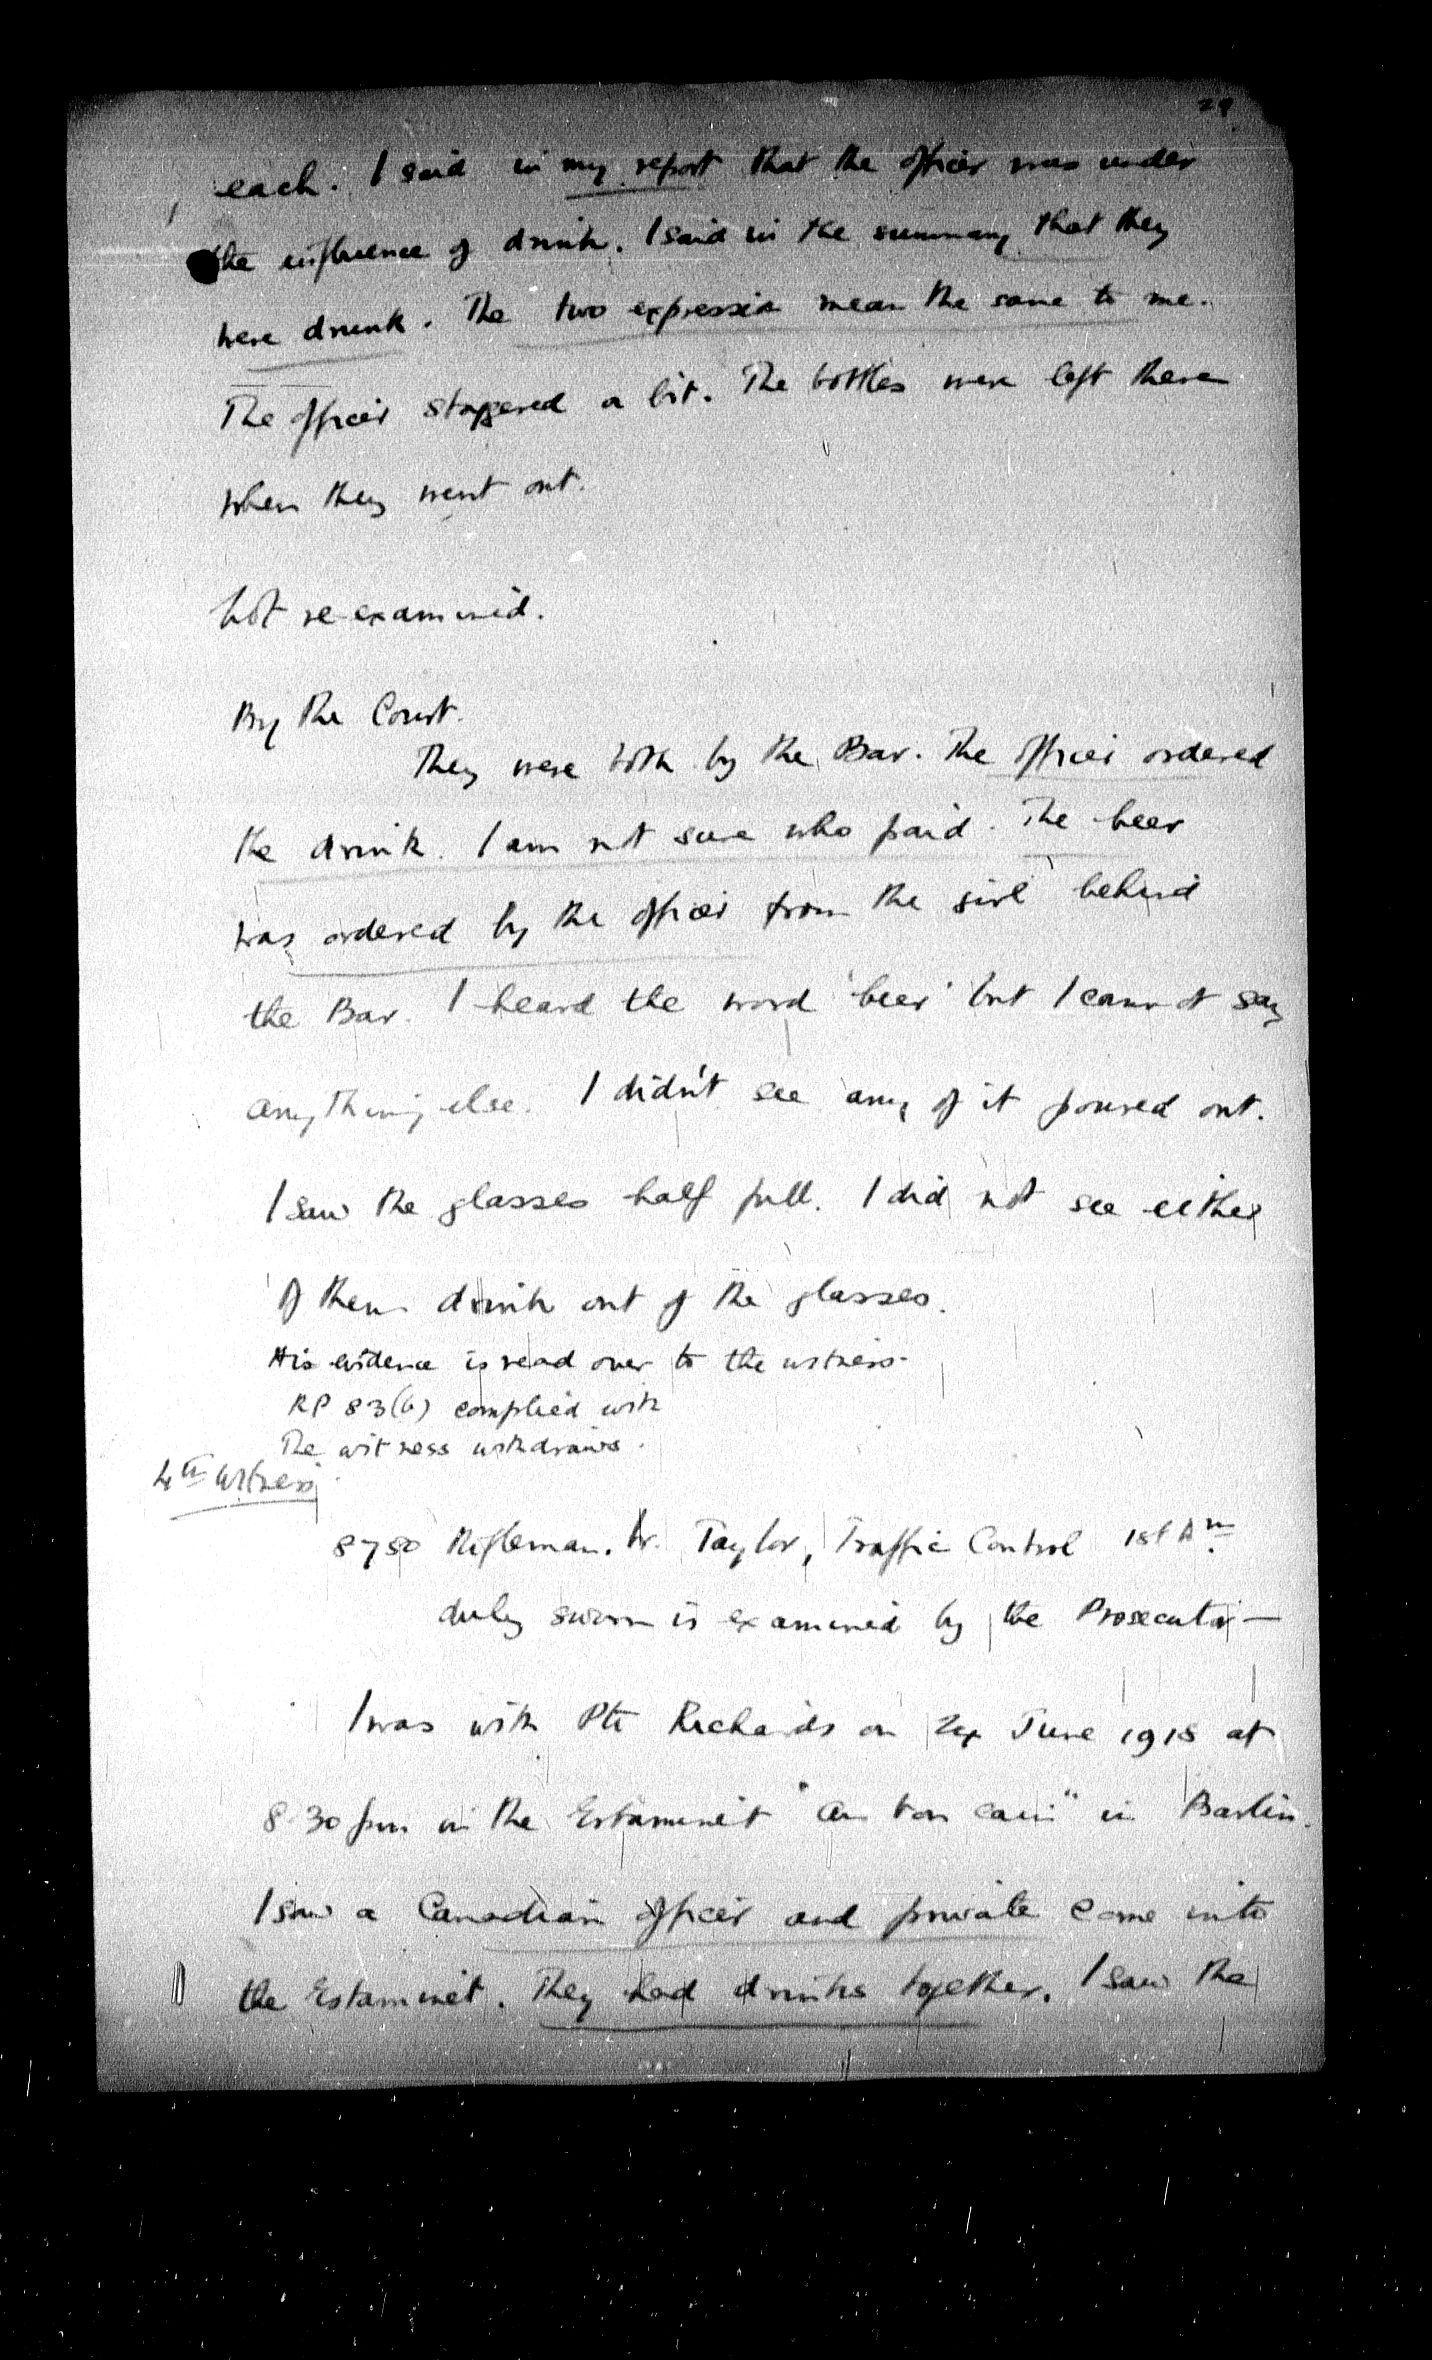 29
each. I said in my report that the officer was under
the influence of drink. I said in the summary that they
were drunk. The two expression mean the same to me.
The officer staggered a bit. The bottles were left there
when they went out.
Not re-examined.
By the Court.
They were both by the Bar. The officer ordered
the drink. I am not sure who paid. The beer
was ordered by the officer from the girl behind
the Bar. I heard the word 'beer' but I cannot say
anything else. I didn't see any of it poured out.
I saw the glasses half full. I did not see either
of them drink out of the glasses.
His evidence is read over to the witness.
RP 83(b) complied with
The witness withdraws.
4th Witness
8780 Rifleman. W. Taylor, Traffic Control 1st
duly sworn is examined by the Prosecutor —
I was with Pte Richards on June 1918 at
8.30 pm in the Estaminet "Au bon coin" in Barlin.
I saw a Canadian officer and private come into
the Estaminet. They had drinks together. I saw the